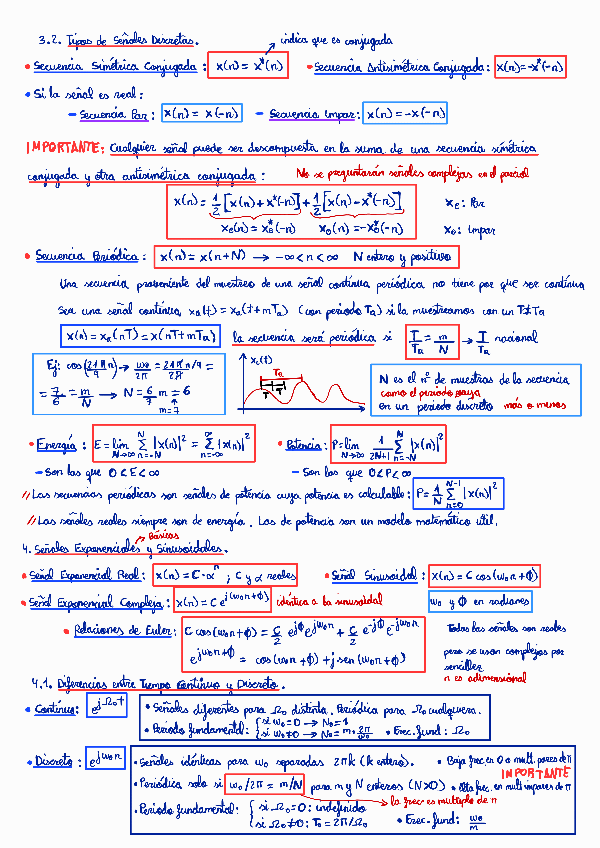 3.2. Tipos de Señales Discretas.
indica que es conjugada
• Secuencia Simétrica Conjugada: x(n) = x*(-n)
• Secuencia Antisimétrica Conjugada: x(n) = -x*(-n)
• Si la señal es real:
- Secuencia Par: x(n) = x(-n) - Secuencia Impar: x(n) = -x(-n)
IMPORTANTE: Cualquier señal puede ser descompuesta en la suma de una secuencia simétrica
conjugada y otra antisimétrica conjugada: No se preguntarán señales complejas en el parcial
x(n) = 1/2 [x(n) + x*(-n)] + 1/2 [x(n) - x*(-n)] xe: Par
xe(n) = xe*(-n) xo(n) = -xo*(-n) xo: Impar
• Secuencia Periódica: x(n) = x(n+N) → -∞<n<∞ N entero y positivo
Una secuencia proveniente del muestreo de una señal continua periódica no tiene por que ser continua
Sea una señal continua xa(t) = xa(t+mTa) (con periodo Ta) si la muestreamos con un T≠Ta
x(n) = xa(nT) = x(nT+mTa) la secuencia será periódica si T/Ta = m/N → T/Ta racional
Ej: cos(2π 7/9 n) → ω0/2π =
= 7/6 = m/N → N = 6/7 m = 6
m=7
xa(t)
Ta
T
N es el nº de muestras de la secuencia
como el periodo
en un periodo discreto más o menos
• Energía: E = lim N→∞ Σ n=-N N |x(n)|² = Σ n=-∞ ∞ |x(n)|²
• Potencia: P = lim N→∞ 1/2N+1 Σ n=-N N |x(n)|²
- Son las que 0<E<∞ - Son las que 0<P<∞
// Las secuencias periódicas son señales de potencia cuya potencia es calculable: P = 1/N Σ n=0 N-1 |x(n)|²
// Las señales reales siempre son de energía. Las de potencia son un modelo matemático útil.
Básicas
4. Señales Exponenciales y Sinusoidales.
• Señal Exponencial Real: x(n) = C·α^n ; C y α reales • Señal Sinusoidal: x(n) = C cos(ω0n+ϕ)
• Señal Exponencial Compleja: x(n) = C e^j(ω0n+ϕ) idéntica a la sinusoidal ω0 y ϕ en radianes
• Relaciones de Euler: C cos(ω0n+ϕ) = C/2 e^jϕ e^jω0n + C/2 e^-jϕ e^-jω0n
e^jω0n+ϕ = cos(ω0n+ϕ) + j sen(ω0n+ϕ)
Todas las señales son reales
pero se usan complejas por
sencillez
n es adimensional
4.1. Diferencias entre Tiempo Continuo y Discreto.
• Continuo: e^jΩ0t
• Señales diferentes para Ω0 distinta. Periódica para Ω0 cualquiera.
• Periodo fundamental: { si ω0=0 → N0=1
si ω0≠0 → N0 = m· 2π/ω0 • Frec. fund: Ω0
• Discreto: e^jω0n
• Señales idénticas para ω0 separadas 2πk (k entero). • Baja frec. en 0 o mult. pares de π
IMPORTANTE
• Periódica solo si ω0/2π = m/N para m y N enteros (N>0) • Alta frec. en mult impares de π
la frec es multiplo de π
• Periodo fundamental: { si Ω0=0: indefinido
si Ω0≠0: T0 = 2π/Ω0 • Frec. fund: ω0/m